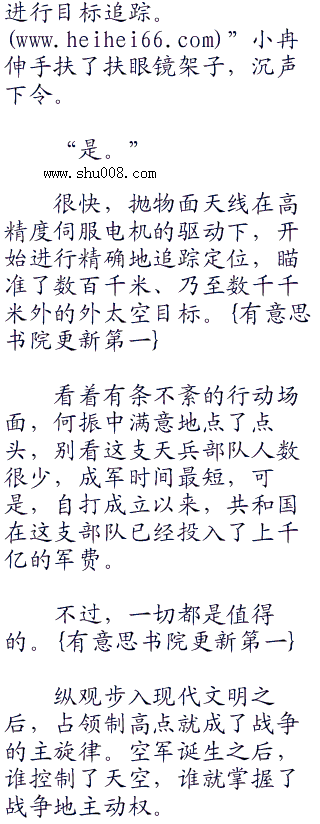 进行目标追踪。
(www.heihei66.com)”小冉
伸手扶了扶眼镜架子，沉声
下令。
“是。”
www.shu008.com
很快，抛物面天线在高
精度伺服电机的驱动下，开
始进行精确地追踪定位，瞄
准了数百千米、乃至数千千
米外的外太空目标。{有意思
书院更新第一}
看着有条不紊的行动场
面，何振中满意地点了点
头，别看这支天兵部队人数
很少，成军时间最短，可
是，自打成立以来，共和国
在这支部队已经投入了上千
亿的军费。
不过，一切都是值得
的。{有意思书院更新第一}
纵观步入现代文明之
后，占领制高点就成了战争
的主旋律。空军诞生之后，
谁控制了天空，谁就掌握了
战争地主动权。